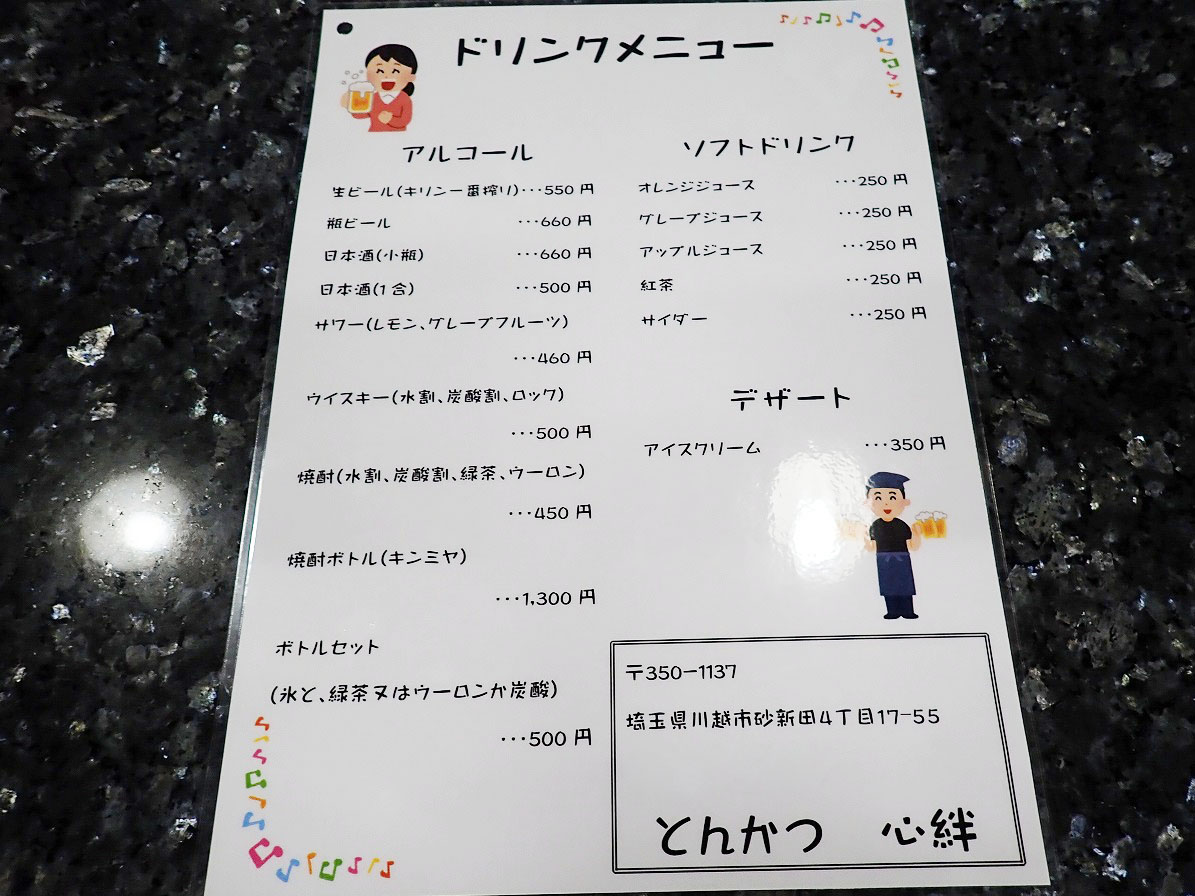 ドリンクメニュー
アルコール
生ビール(キリン一番搾り)…550 円
瓶ビール …660 円
日本酒(小瓶) …660 円
日本酒(1合) …500 円
サワー(レモン、グレープフルーツ)
…460 円
ウイスキー(水割、炭酸割、ロック)
…500 円
焼酎(水割、炭酸割、緑茶、ウーロン)
…450 円
焼酎ボトル(キンミヤ)
…1,300 円
ボトルセット
(氷と、緑茶又はウーロンか炭酸)
…500 円
ソフトドリンク
オレンジジュース …250 円
グレープジュース …250 円
アップルジュース …250 円
紅茶 …250 円
サイダー …250 円
デザート
アイスクリーム …350 円
〒350-1137
埼玉県川越市砂新田4丁目17-55
とんかつ 心絆